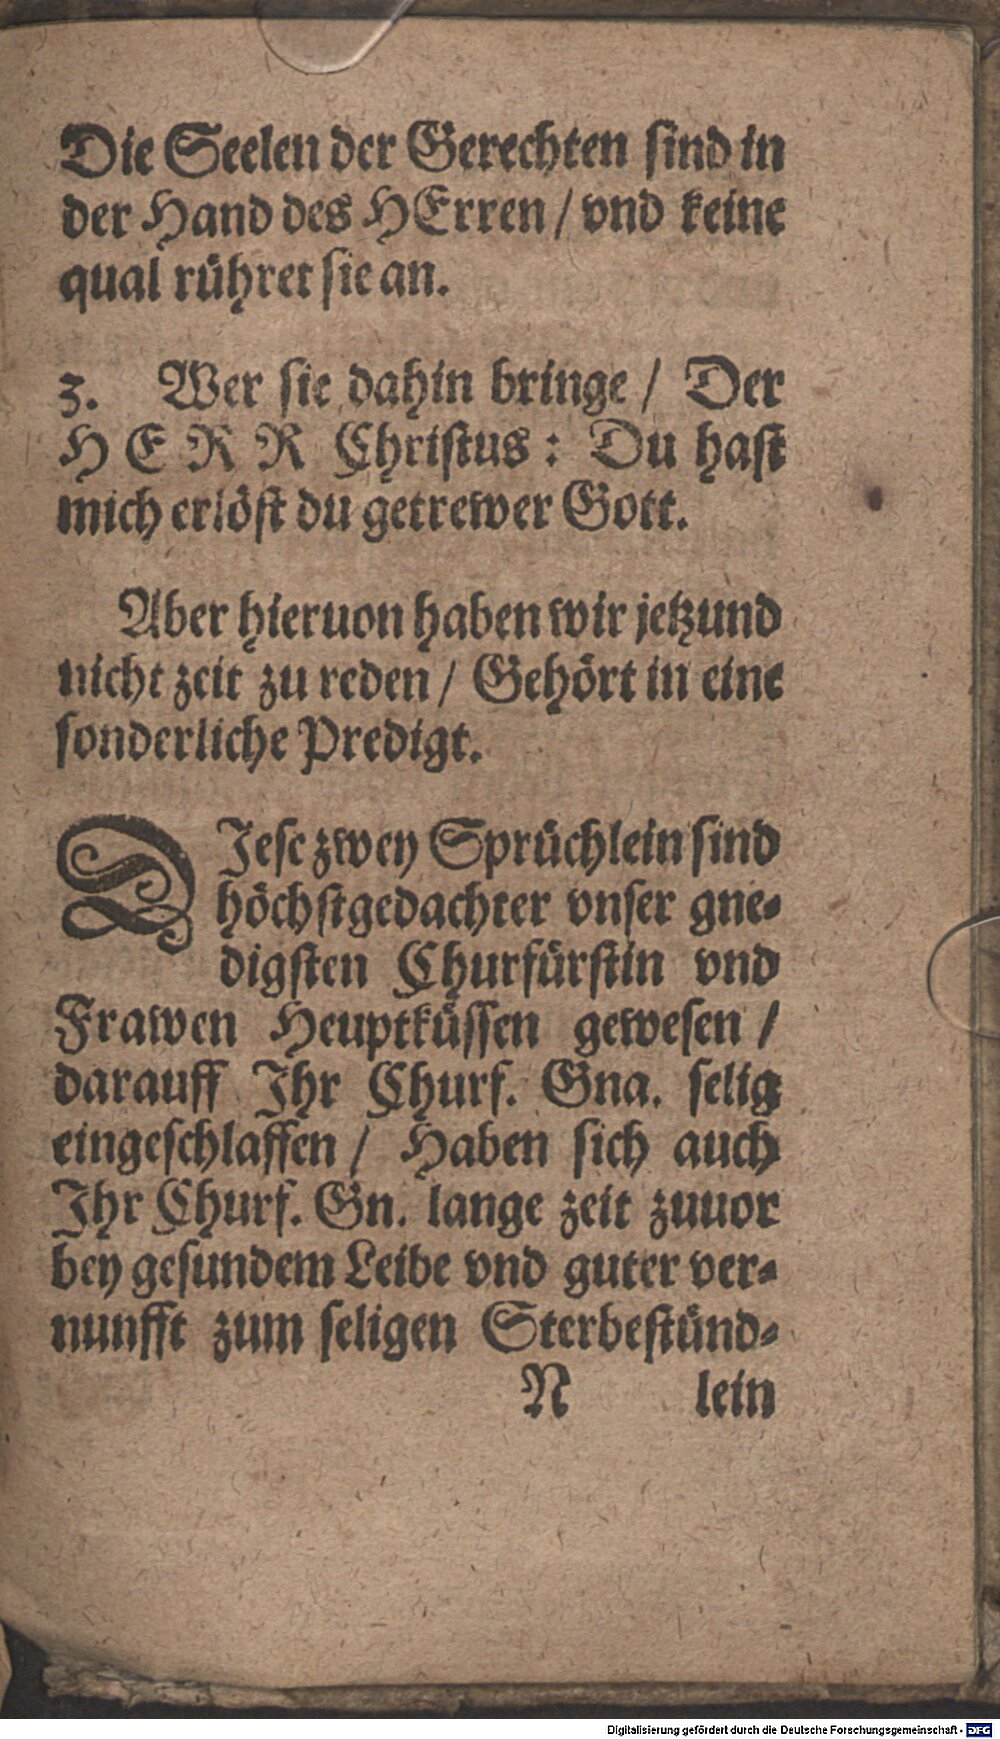 Die Seelen der Gerechten sind in
der Hand des HErren / vnd keine
qual rühret sie an.
3. Wer sie dahin bringe / Der
HERR Christus: Du hast
mich erlöst du getrewer Gott.
Aber hieruon haben wir jetzund
nicht zeit zu reden / Gehört in eine
sonderliche Predigt.
DIese zwey Sprüchlein sind
höchstgedachter vnser gne-
digsten Churfürstin vnd
Frawen Heuptküssen gewesen /
darauff Ihr Churf. Gna. selig
eingeschlaffen / Haben sich auch
Ihr Churf. Gn. lange zeit zuuor
bey gesundem Leibe vnd guter ver-
nunfft zum seligen Sterbestünd-
N lein
Digitalisierung gefördert durch die Deutsche Forschungsgemeinschaft - DFG